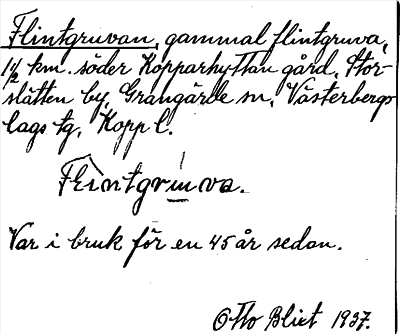 Flintgruvan, gammal flintgruva,
1 1/2 km. söder Kopparhyttan gård, Stor-
slätten by, Grangärde sn, Västerbergs
lags tg, Kopp l.
Flintgruva.
Var i bruk för en 45 år sedan.
Otto Blixt 1937.